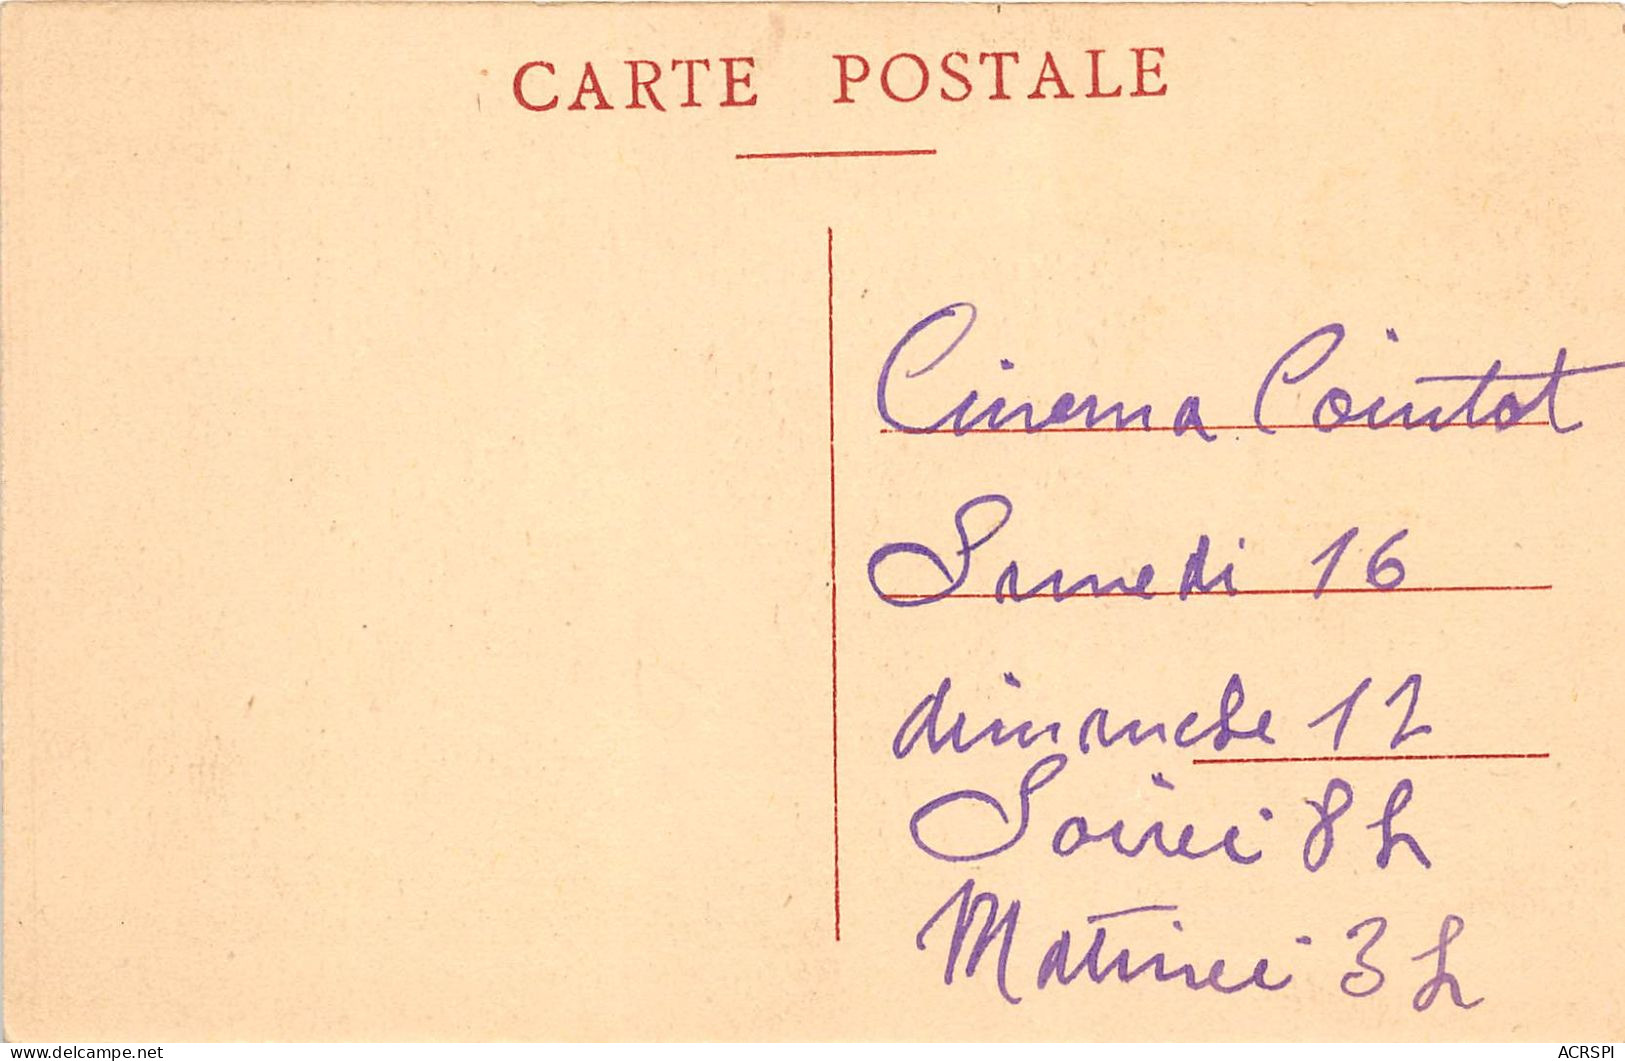 CARTE POSTALE
Cinema Cointot
Samedi 16
dimanche 17
Soirée 8 h
Matinée 3 h
delcampe.net
ACRSPI